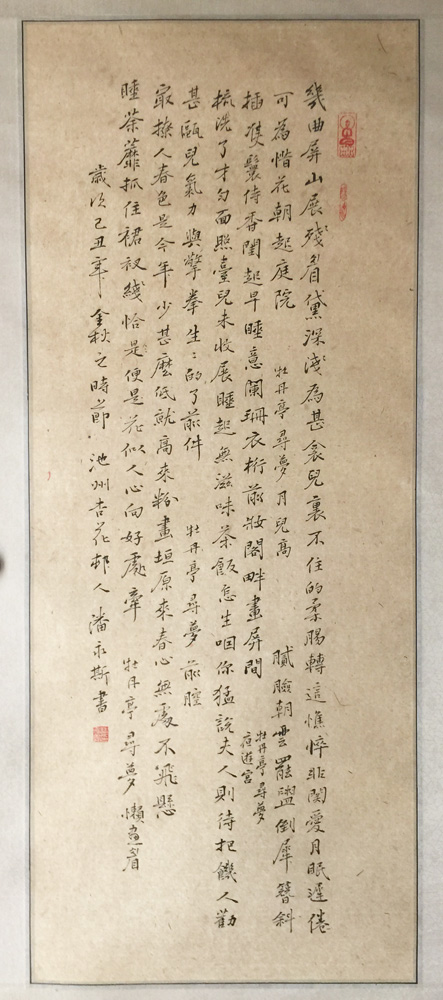 幾曲屏山展殘眉黛深淺為甚衾兒裏不住的柔腸轉這憔悴非関愛月眠遲倦
可為惜花朝起庭院 牡丹亭 尋夢 月兒高 膩臉朝雲罷盥倒犀簪斜
插雙鬟侍香閨起早睡意闌珊衣桁前妝閣畔畫屏間 牡丹亭 尋夢 夜遊宮
梳洗了才勻面照臺兒未收展睡起無滋味茶飯怎生咽你猛說夫人則待把饑人勸
甚甌兒氣力與擎拳生生的了前件 牡丹亭 尋夢 前腔
最撩人春色是今年少甚麼低就高來粉畫垣原來春心無處不飛懸
睡荼蘼抓住裙衩綫恰是便是花似人心向好處牽 牡丹亭 尋夢 懶畫眉
歲次己丑年金秋之時節池州杏花邨人潘永斯書